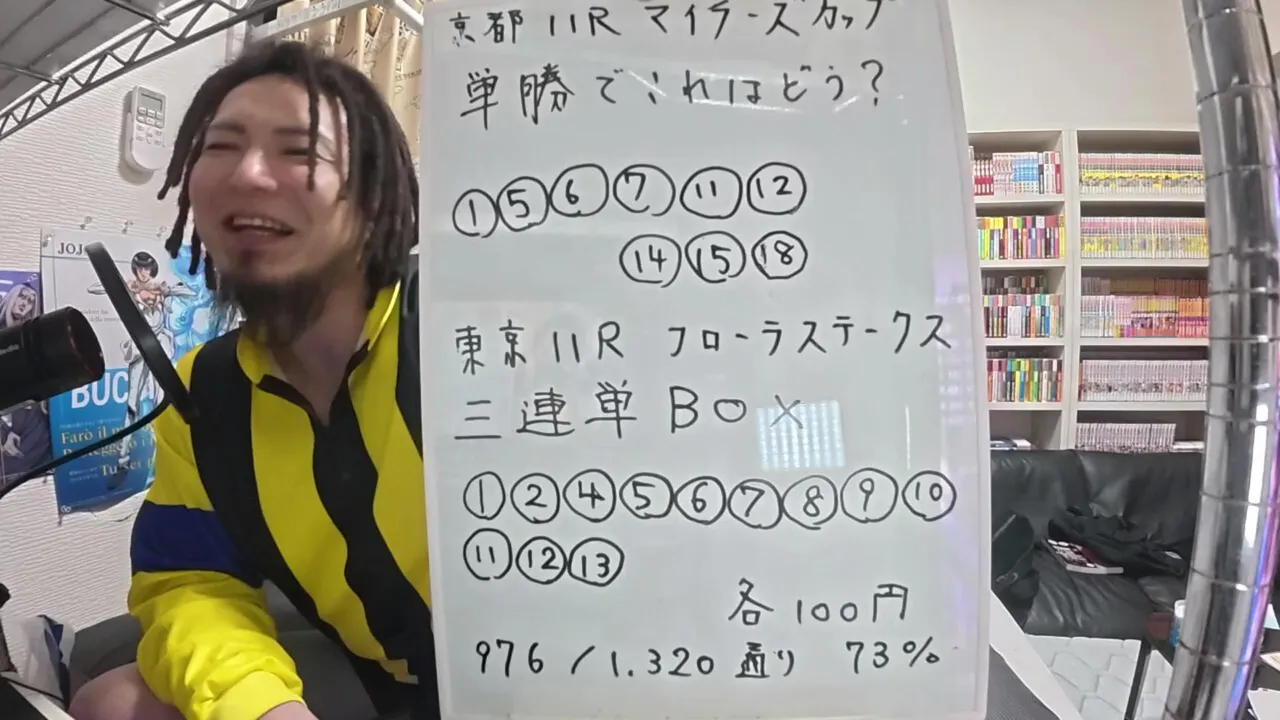 京都 11R マイラーズカップ
単勝でこれはどう?
① ⑤ ⑥ ⑦ ⑪ ⑫
⑭ ⑮ ⑱
東京 11R フローラステークス
三連単 BOX
① ② ④ ⑤ ⑥ ⑦ ⑧ ⑨ ⑩
⑪ ⑫ ⑬
各 100円
976 / 1.320 通り 73%
JOJO
BUC
Farò il m